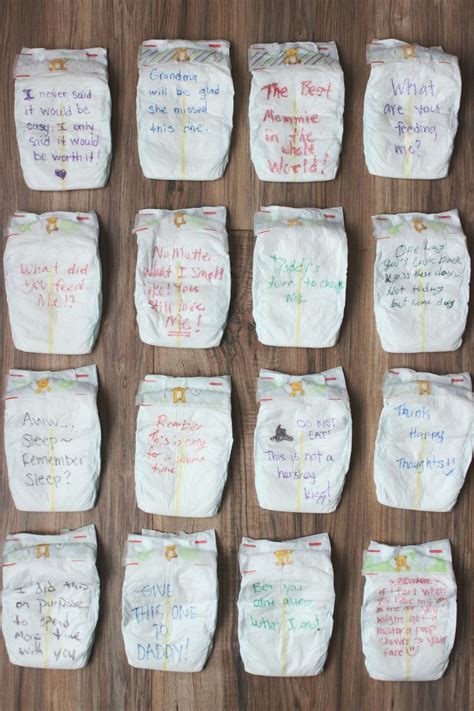 I never said
it would be
easy, I only
said it would
be worth it!
Grandma
will be glad
she missed
this one.
The Best
Mommie
in the
whole
World!
What
are you
feeding
me?
What did
you feed
Me!?
No Matter
What I smell
like! You
Still love
Me!
Daddy's
turn to change
Me.
One day
you'll look back
& miss these days
Not today
but some day
Aww...
Sleep~
Remember
Sleep?
Rember
This is only
for a short
time
DO NOT
EAT!
This is not a
hershey
kiss!
Think
Happy
Thoughts!!
I did this
on purpose
to spend
more time
with you
GIVE
THIS ONE
TO
DADDY!
Bet you
can't guess
what I ate!
Beware
if I fart when
you have my
in the air you
might get a
shower to
your face!!